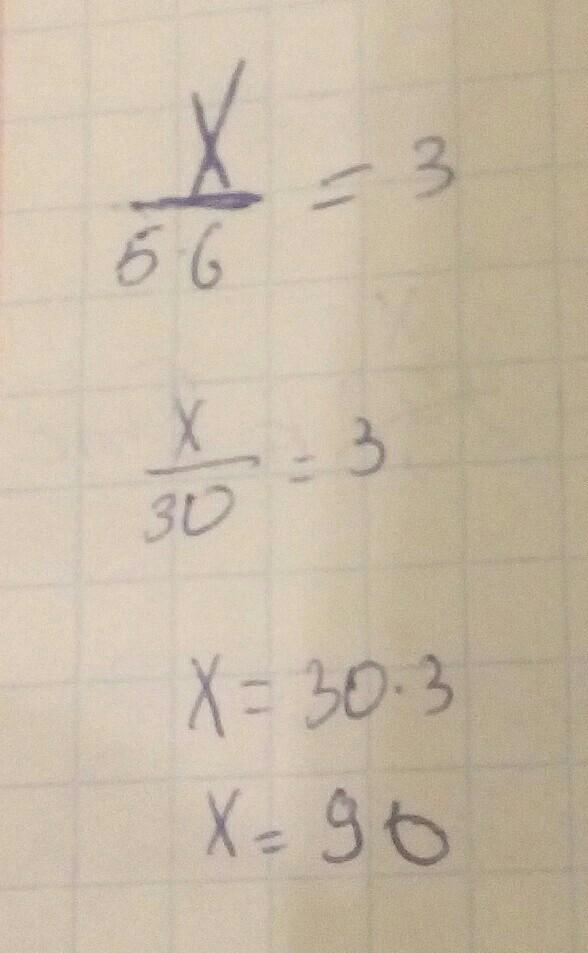 x/5·6 = 3
x/30 = 3
x = 30·3
x = 90